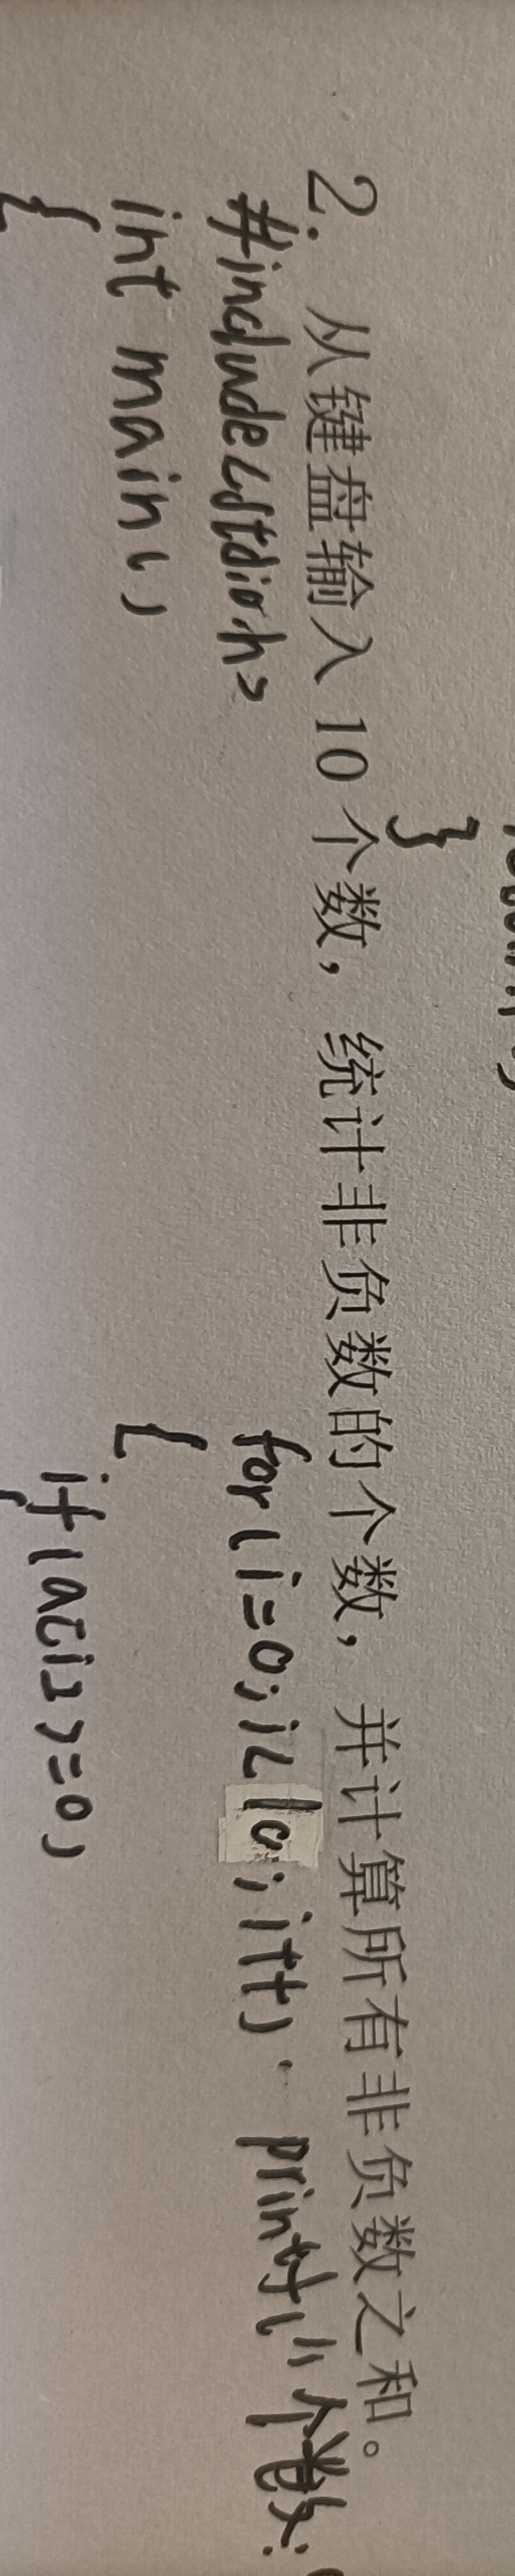 }
2. 从键盘输入 10 个数，统计非负数的个数，并计算所有非负数之和。
#include<stdio.h>
int main()
{
for(i=0;i<10;i++)
{
if(a[i]>=0)
printf("个数: